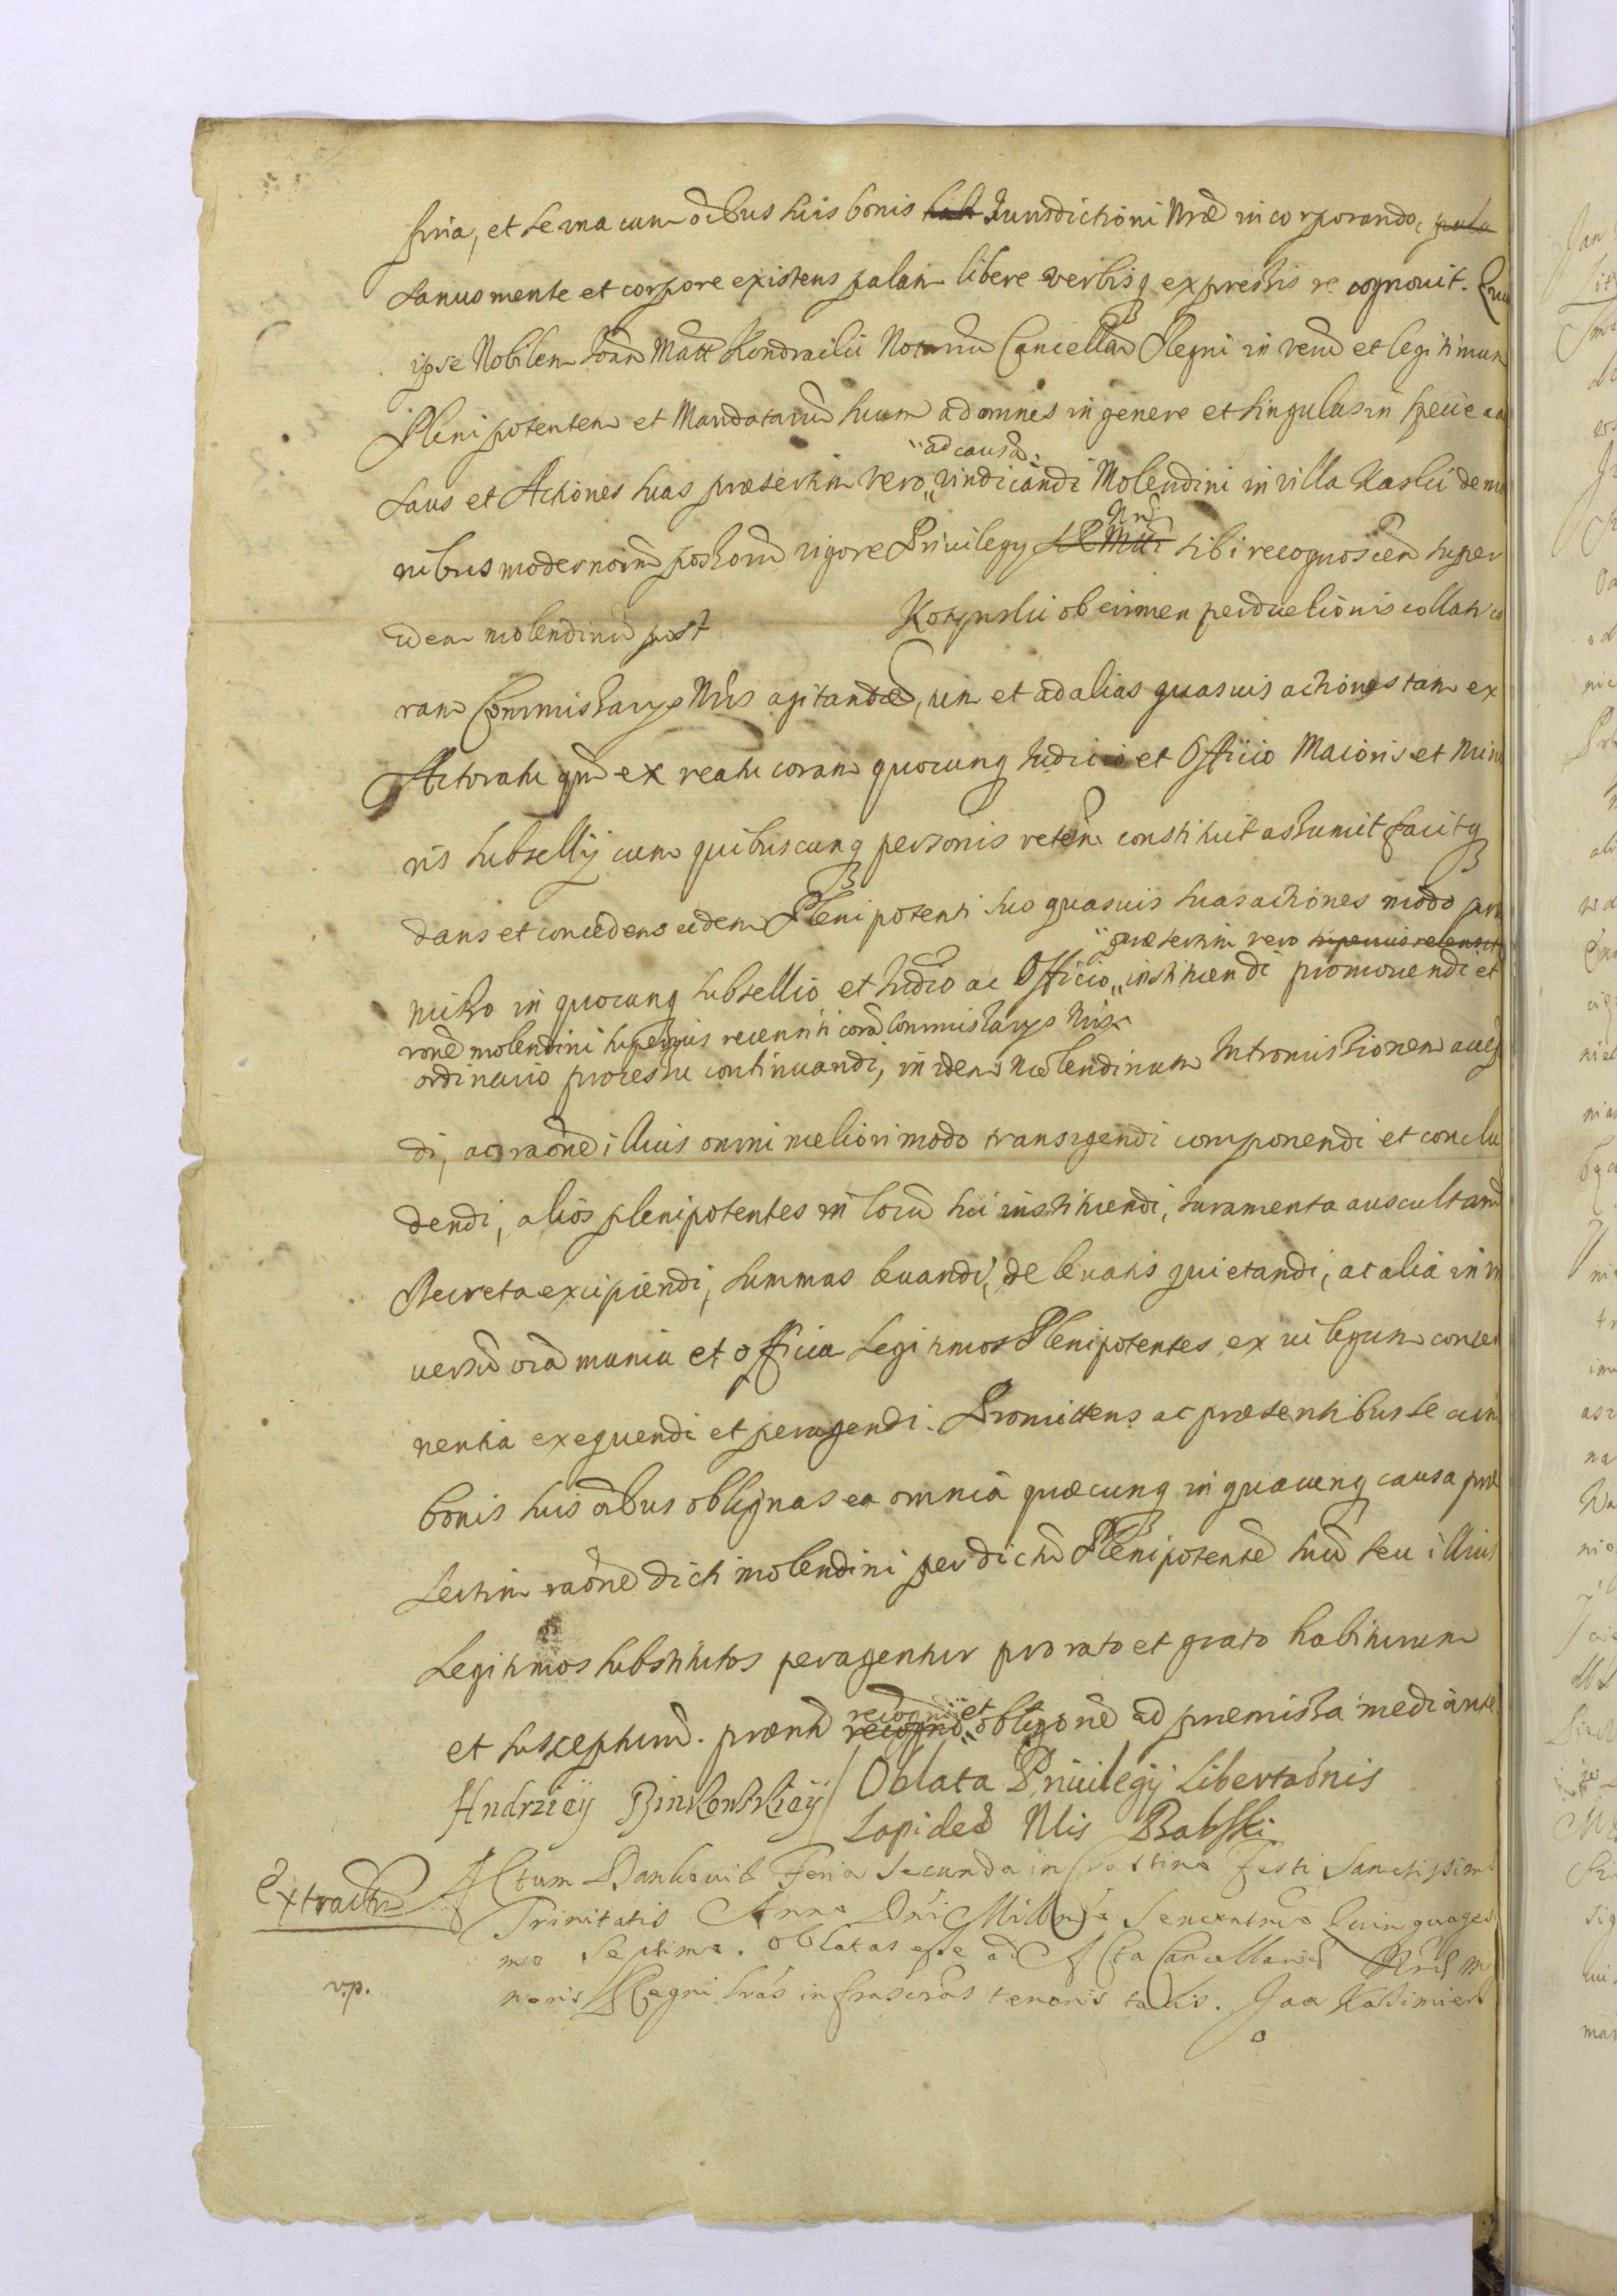 firia, et se una cum oibus suis bonis Jurisdictioni Nræ incorporando,
sanus mente et corpore existens palam libere verbisq expressis recognouit. Quia
ipse Nobilem Joan Matt Kondracki Notariu Cancellar Regni in veru et legitimum
Plenipotentem et Mandatariu suum ad omnes in genere et singulas in specie ca
"ad causa
saus et Actiones suas præsertim vero "vindicandi Molendini in villa Kaski de ma
Nri
nibus modernoru possoru vigore Priuilegy sibi recognoscen super
idem molendinu post Kotynski ob crimen perduelionis collati co
ram Commissarys Nris agitandæ, um et ad alias quasuis actiones tam ex
Actoratu qm ex reatu coram quocunq Judicio et Officio Maioris et Mino
ris subsellij cum quibuscunq personis reten constituit assumit facitq
dans et concedens eidem Plenipotenti suo quasuis suas actiones modo pra
"præsertim vero superius recensit
misso in quocunq subsellio et Judio ac Officio "instituendi promouendi et
rone molendini superius recensiti cora Commissarys Nris
ordinario processu continuandi, in idem Molendinum Intromissionem accep
di, ac raone illius omni meliori modo transigendi componendi et conclu
dendi, alios plenipotentes in locu sui instituendi, Juramenta auscultand
Decreta excipiendi, summas leuandi, de leuatis quietandi, ac alia in vni
uersu oia munia et officia Legitimos Plenipotentes ex vi legum concer
nentia exequendi et peragendi. Promittens ac præsentibus se cum
bonis suis oibus oblignas ea omnia quæcunq in quacunq causa præ
sertim raone dicti molendini per dictu Plenipotente suu seu illius
Legitimos substitutos peragentur pro rato et grato habiturum
recogni et
et suscepturu. prænti recogno "obligone ad præmissa mediante
Andrziey Binkowskiey / Oblata Priuilegij Libertaonis
Lapideæ Nlis Babski
Extractu Actum Varsauiæ Feria Secunda in Crastino Festi Sanctissimæ
Trinitatis Anno Dni Millmo Sexcentmo Quinquagesi
mo Septimo. Oblatas esse ad Acta Cancellariæ Mi
v.p. noris Regni lras infrascras tenoris talis. Jan Kazimierz